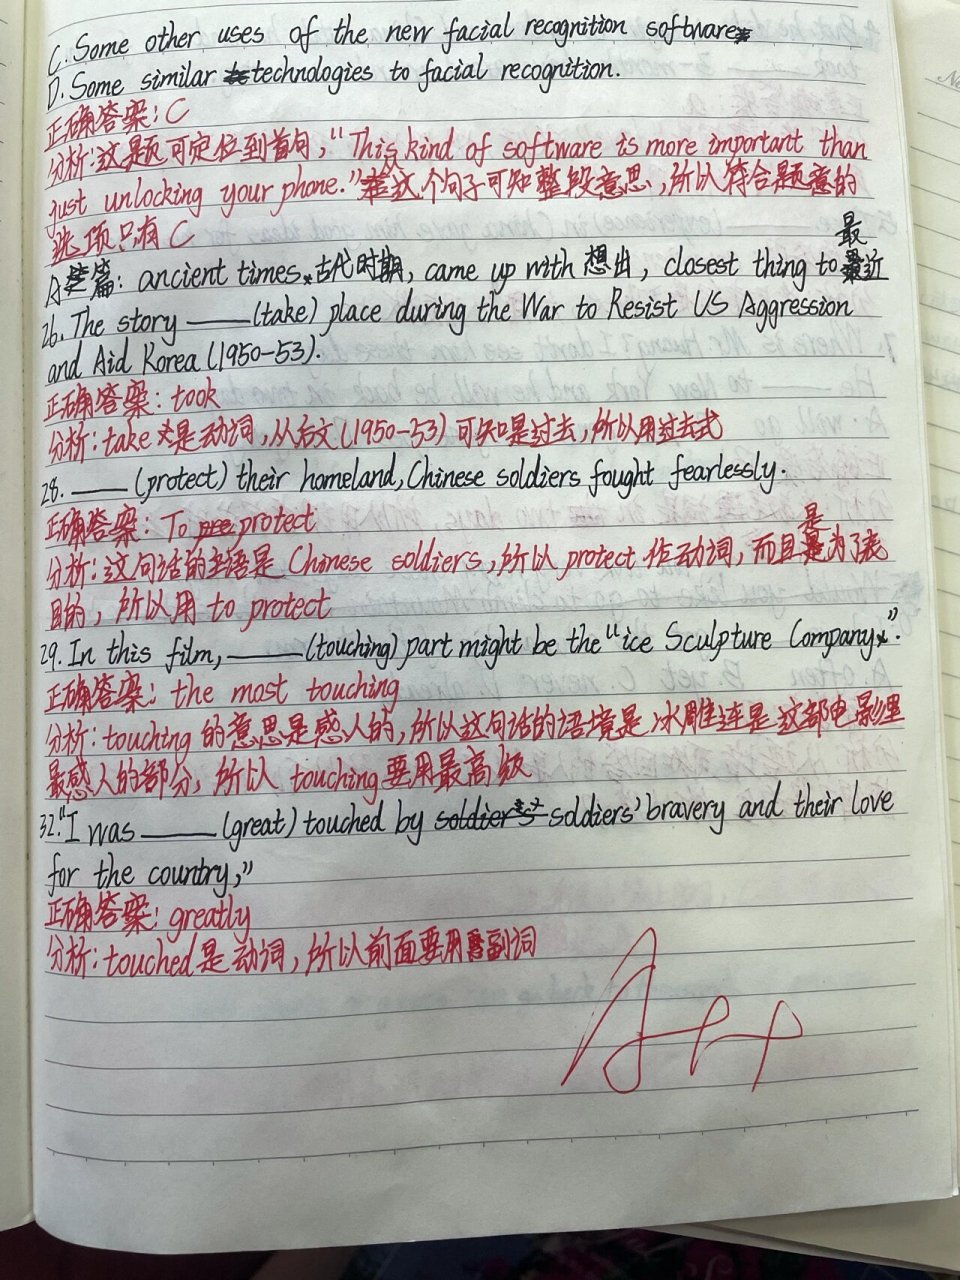 C. Some other uses of the new facial recognition software
D. Some similar technologies to facial recognition.
正确答案: C
分析: 这题可定位到首句, "This kind of software is more important than
just unlocking your phone." 这个句子可知整段意思, 所以符合题意的
选项只有 C
A 篇: ancient times 古代时期, came up with 想出, closest thing to 最近
26. The story ____ (take) place during the War to Resist US Aggression
and Aid Korea (1950-53).
正确答案: took
分析: take 是动词, 从后文 (1950-53) 可知是过去, 所以用过去式
28. ____ (protect) their homeland, Chinese soldiers fought fearlessly.
正确答案: To protect
分析: 这句话的主语是 Chinese soldiers, 所以 protect 作动词, 而且是为了表
目的, 所以用 to protect
29. In this film, ____ (touching) part might be the "ice Sculpture Company".
正确答案: the most touching
分析: touching 的意思是感人的, 所以这句话的语境是冰雕连是这部电影里
最感人的部分, 所以 touching 要用最高级
32. "I was ____ (great) touched by soldiers' bravery and their love
for the country,"
正确答案: greatly
分析: touched 是动词, 所以前面要用副词
A++